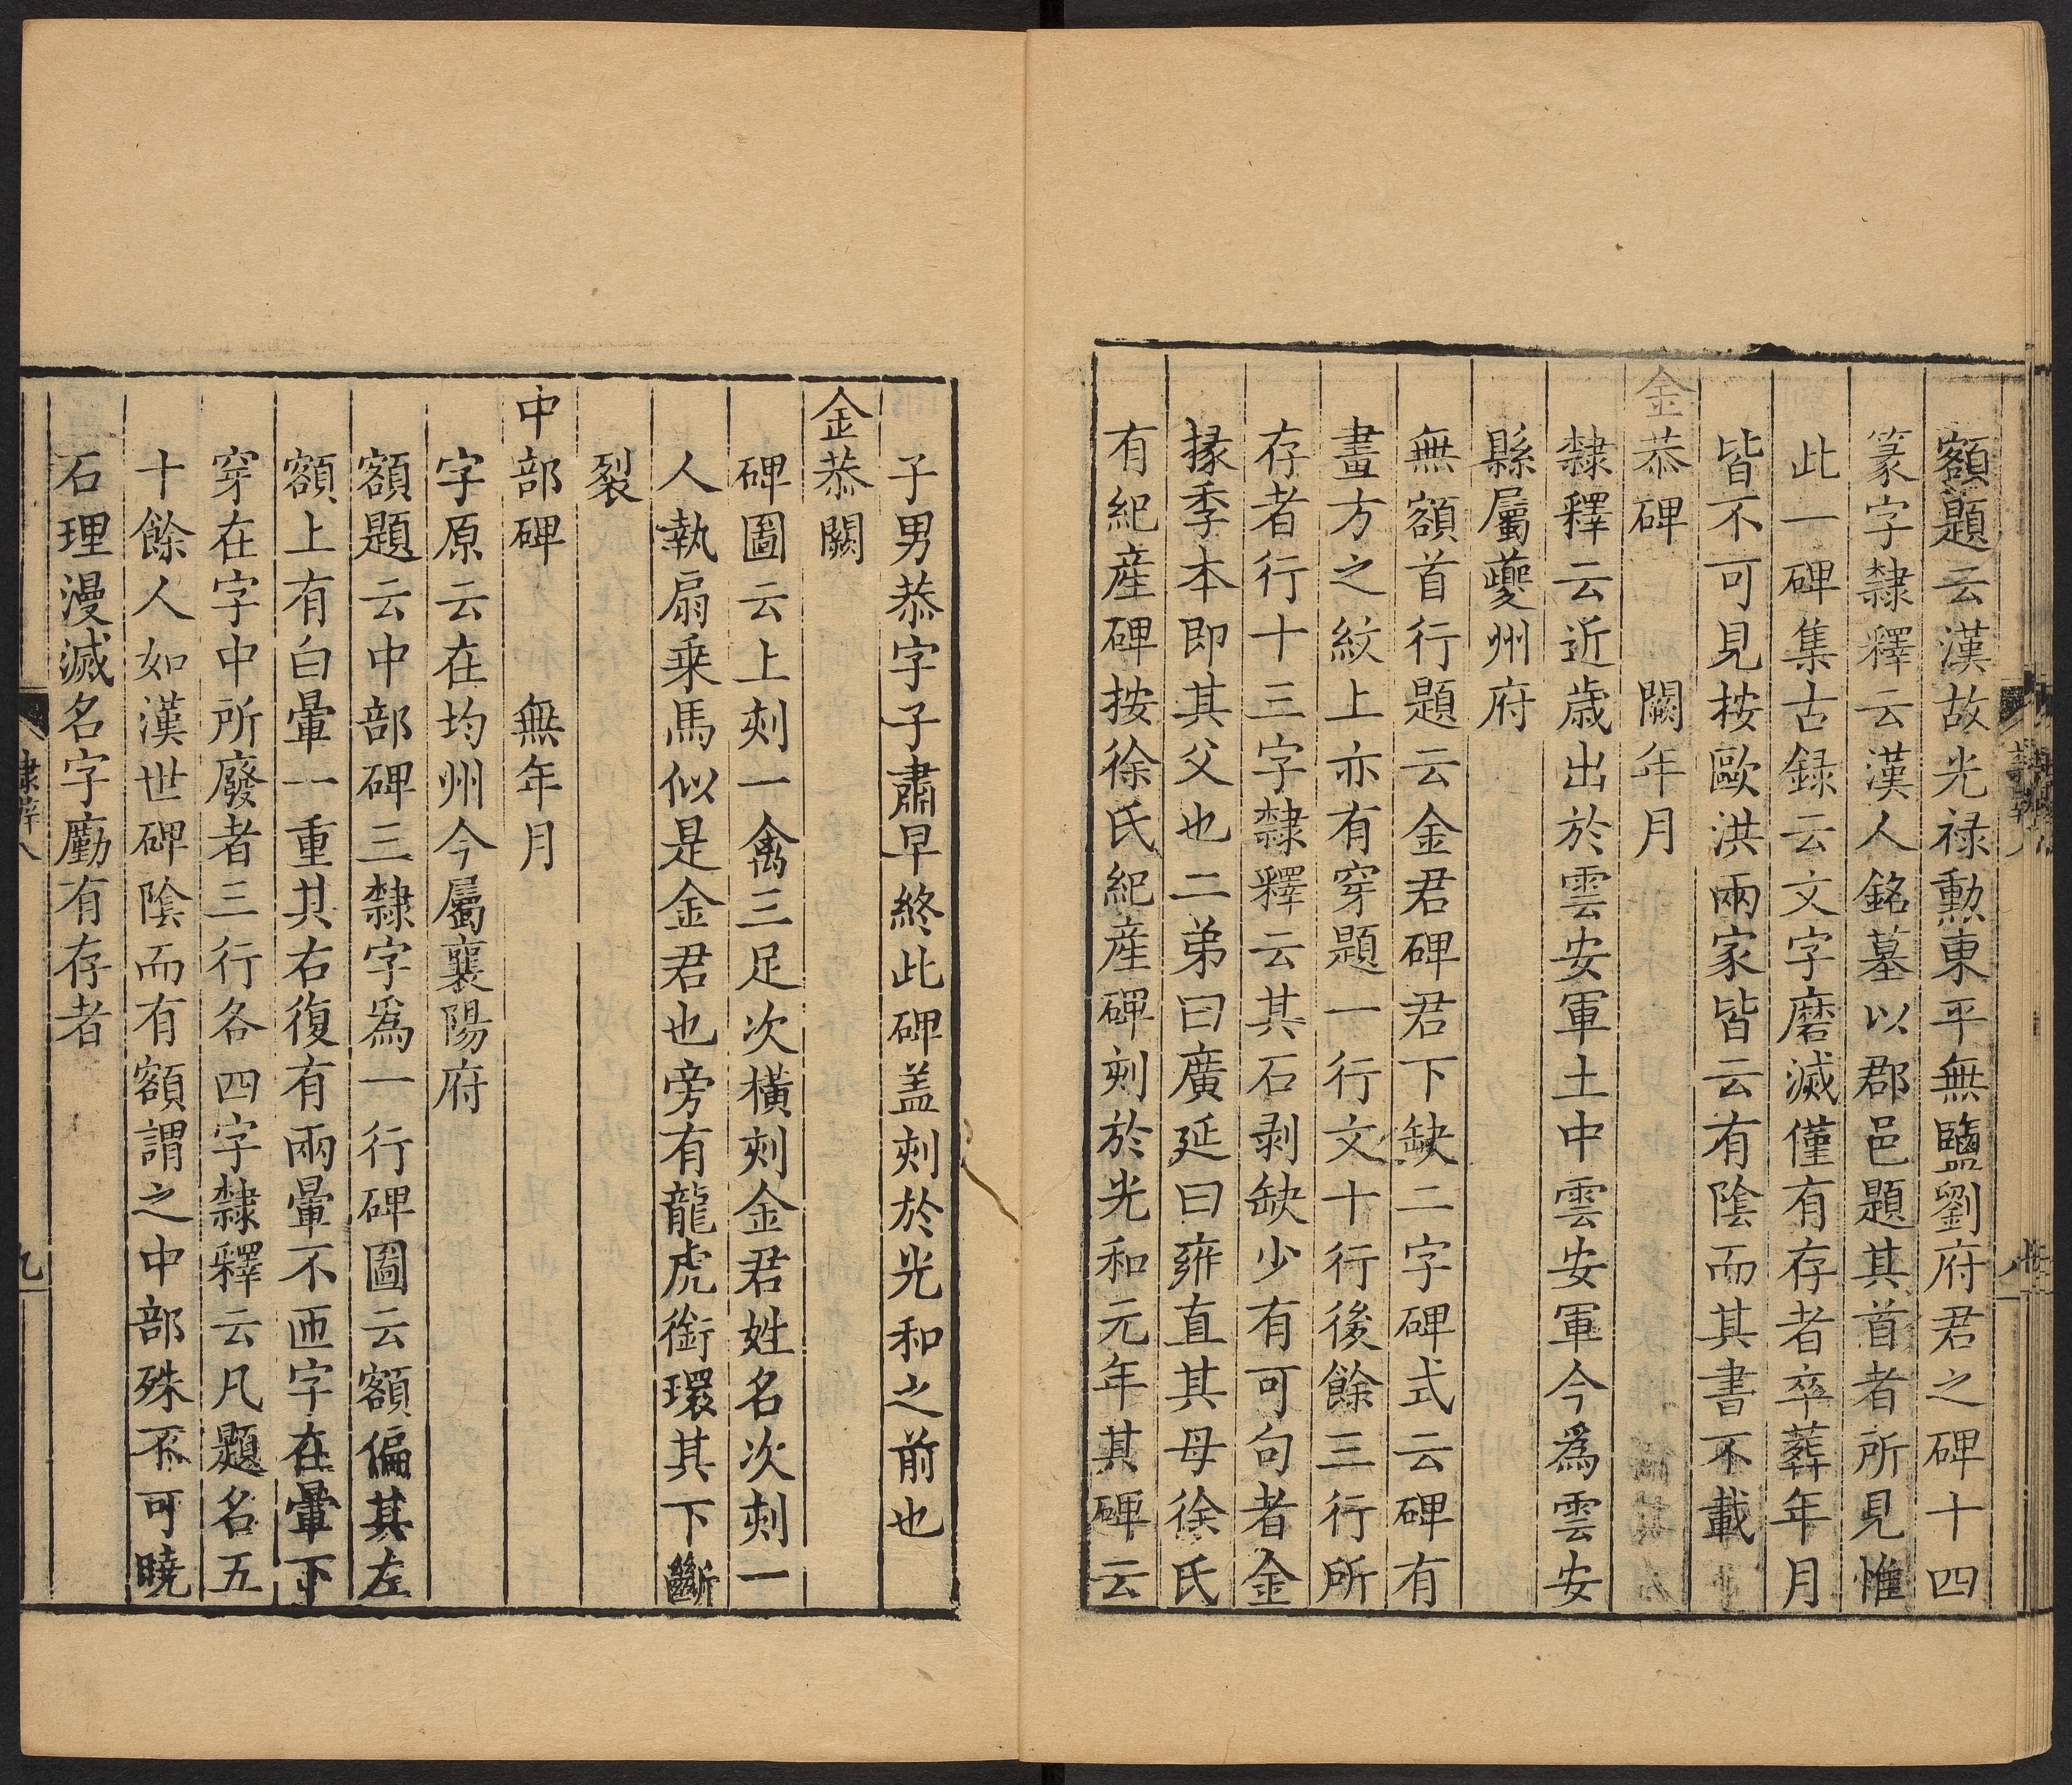 額題云漢故光禄勲東平無鹽劉府君之碑十四
篆字隸釋云漢人銘墓以郡邑題其首者所見惟
此一碑集古録云文字磨滅僅有存者卒葬年月
皆不可見按歐洪兩家皆云有陰而其書不載
金恭碑 闕年月
隸釋云近歲出於雲安軍土中雲安軍今爲雲安
縣屬夔州府
無額首行題云金君碑君下缺二字碑式云碑有
畫方之紋上亦有穿題一行文十行後餘三行所
存者行十三字隸釋云其石剥缺少有可句者金
掾季本即其父也二弟曰廣延曰雍直其母徐氏
有紀産碑按徐氏紀産碑刻於光和元年其碑云
子男恭字子肅早終此碑盖刻於光和之前也
金恭闕
碑圖云上刻一禽三足次横刻金君姓名次刻一
人執扇乗馬似是金君也旁有龍虎銜環其下斷
裂
中部碑 無年月
字原云在均州今屬襄陽府
額題云中部碑三隸字爲一行碑圖云額偏其左
額上有白暈一重其右復有兩暈不匝字在暈下
穿在字中所廢者三行各四字隸釋云凡題名五
十餘人如漢世碑陰而有額謂之中部殊不可曉
石理漫滅名字劘有存者
隸辨八
九